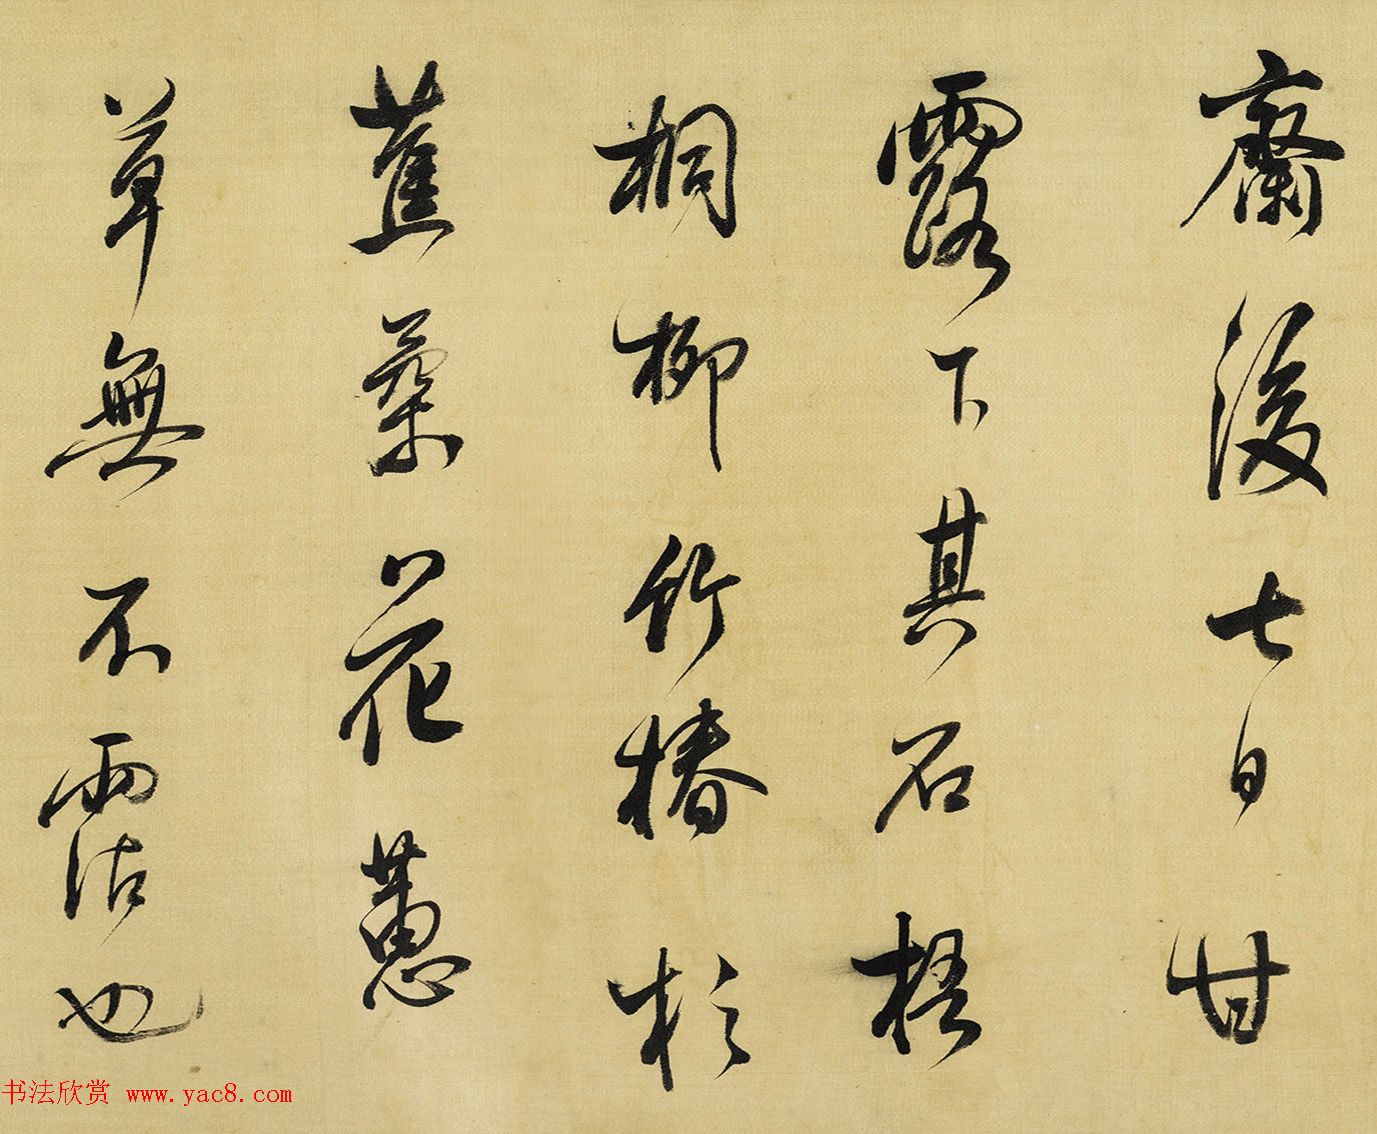 齋後七日甘
露下其石梧
桐柳竹椿杉
蕉藥花蕙
草無不霑也
书法欣赏 www.yac8.com